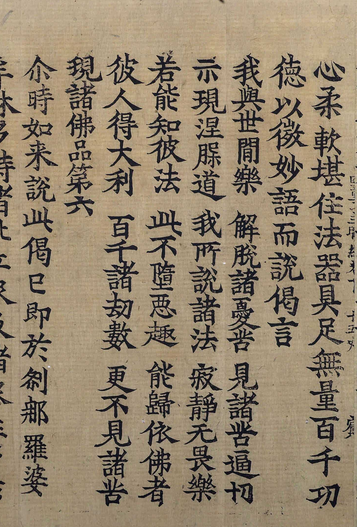 心柔軟堪任法器具足無量百千功
德以微妙語而說偈言
我與世間樂 解脫諸憂苦 見諸苦逼切
示現涅槃道 我所說諸法 寂靜无畏樂
若能知彼法 此不墮惡趣 能歸依佛者
彼人得大利 百千諸劫數 更不見諸苦
現諸佛品第六
尒時如来說此偈已即於刹那羅婆